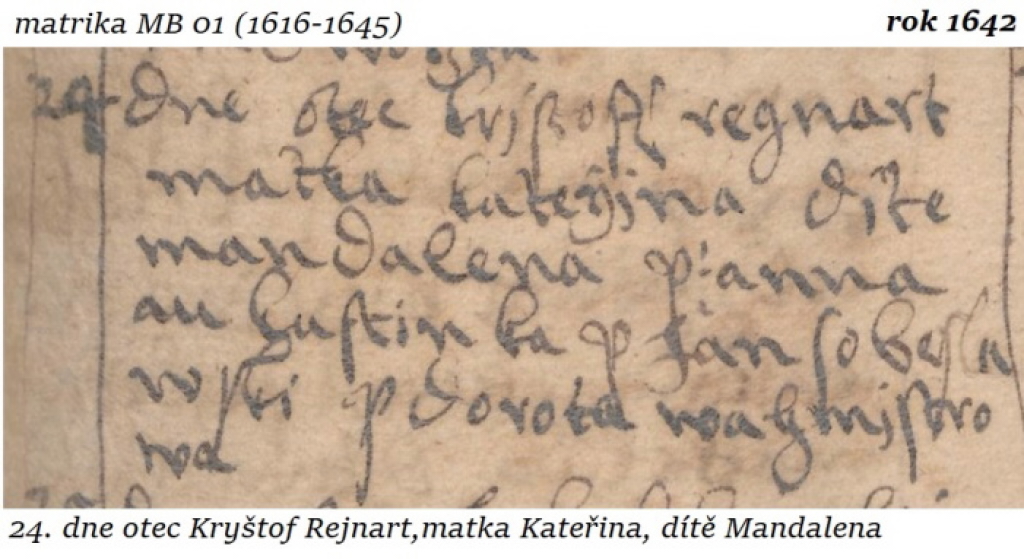 matrika MB 01 (1616-1645)
rok 1642
24 dne otec kristoff regnart
matka katerzina dite
mandalena p: anna
au hustin ka p Jan sobiesla
wski p dorota wahmistro
wa
24. dne otec Kryštof Rejnart,matka Kateřina, dítě Mandalena